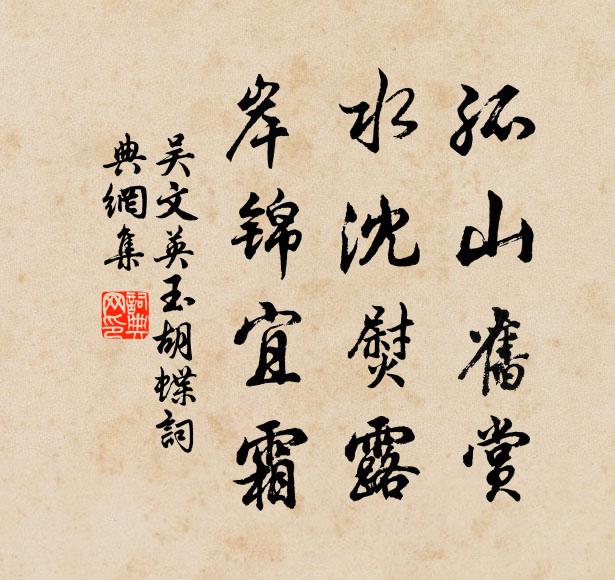 孤山舊賞
水沈熨露
岸锦宜霜
吴文英玉胡蝶詞
典網集
詞典网印